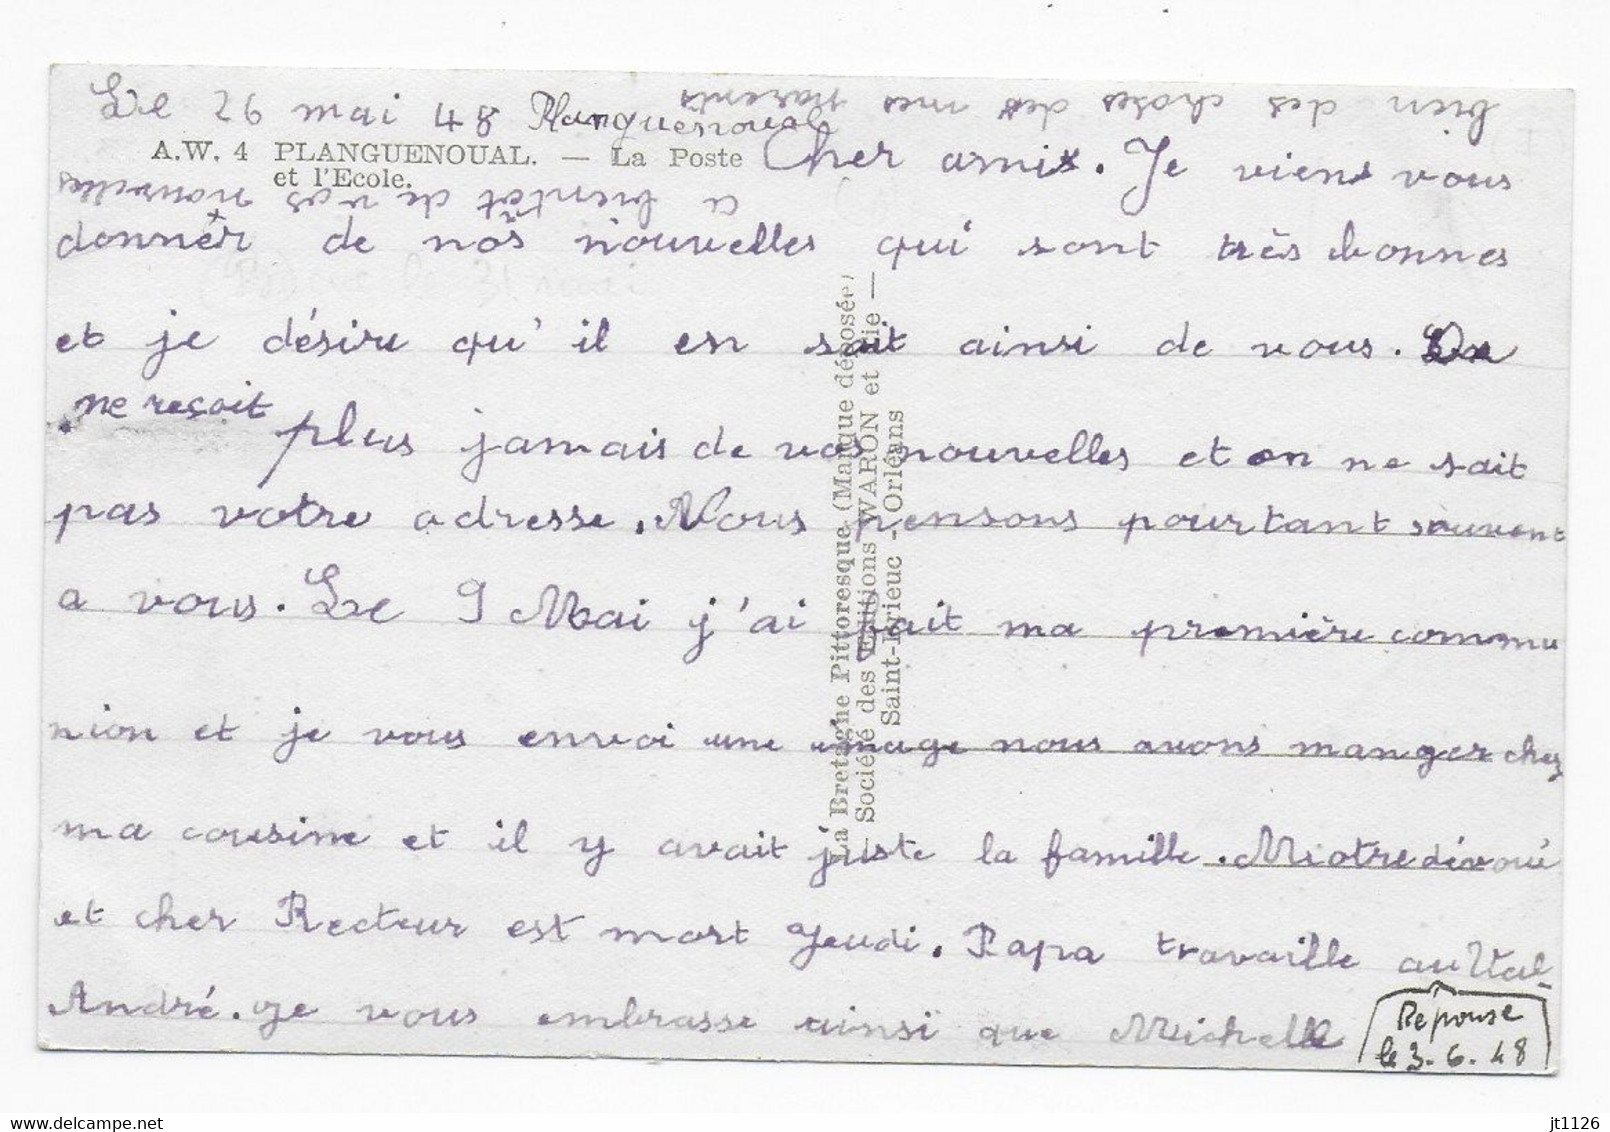 Le 26 mai 48 Planguenoual
A.W. 4 PLANGUENOUAL. — La Poste
et l'Ecole.
Cher amis. Je viens vous
donner de nos nouvelles qui sont très bonnes
et je désire qu'il en soit ainsi de vous. On
ne reçoit plus jamais de vos nouvelles et on ne sait
pas votre adresse. Nous pensons pourtant souvent
a vous. Le 9 Mai j'ai fait ma première commu
nion et je vous envoi une image nous avons manger chez
ma cousine et il y avait juste la famille. Notre dévoué
et cher Recteur est mort Jeudi. Papa travaille au Val
André. Je vous embrasse ainsi que Michelle
bien des choses des mes parents
a bientôt de vos nouvelles
Réponse
le 3.6.48
La Bretagne Pittoresque (Marque déposée)
Société des Editions WARON et Cie —
Saint-Brieuc - Orléans
jt1126